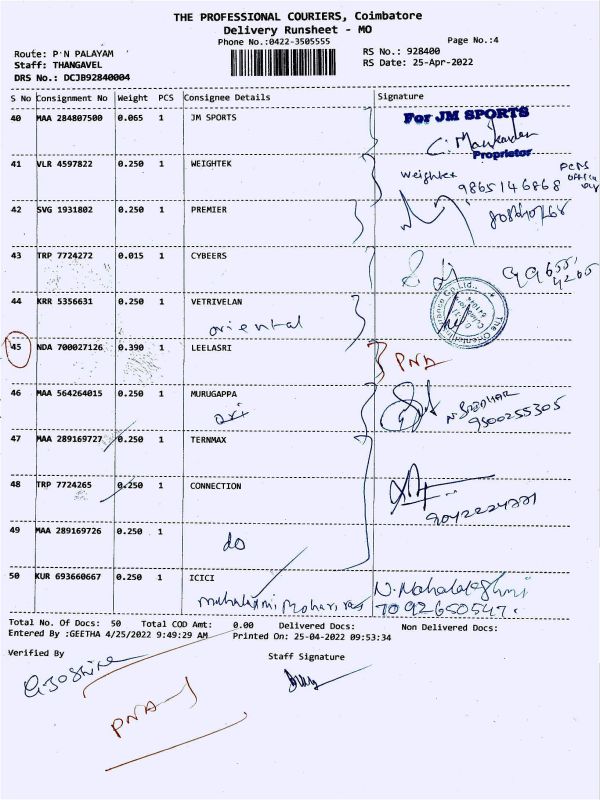 THE PROFESSIONAL COURIERS, Coimbatore
Delivery Runsheet - MO
Phone No.:0422-3505555
Page No.:4
Route: P N PALAYAM
RS No.: 928400
Staff: THANGAVEL
RS Date: 25-Apr-2022
DRS No.: DCJB92840004
S No Consignment No Weight PCS Consignee Details Signature
40 MAA 284807500 0.065 1 JM SPORTS
For JM SPORTS
Proprietor
41 VLR 4597822 0.250 1 WEIGHTEK
Weightek
9865146868
42 SVG 1931802 0.250 1 PREMIER
43 TRP 7724272 0.015 1 CYBEERS
44 KRR 5356631 0.250 1 VETRIVELAN
oriental
45 NDA 700027126 0.390 1 LEELASRI
PNA
46 MAA 564264015 0.250 1 MURUGAPPA
N. SRIDHAR
9500255305
47 MAA 289169727 0.250 1 TERNMAX
48 TRP 7724265 0.250 1 CONNECTION
49 MAA 289169726 0.250 1
do
50 KUR 693660667 0.250 1 ICICI
N. Mahalakshmi
7092650547.
Total No. Of Docs: 50 Total COD Amt: 0.00 Delivered Docs: Non Delivered Docs:
Entered By :GEETHA 4/25/2022 9:49:29 AM Printed On: 25-04-2022 09:53:34
Verified By
Staff Signature
PNA